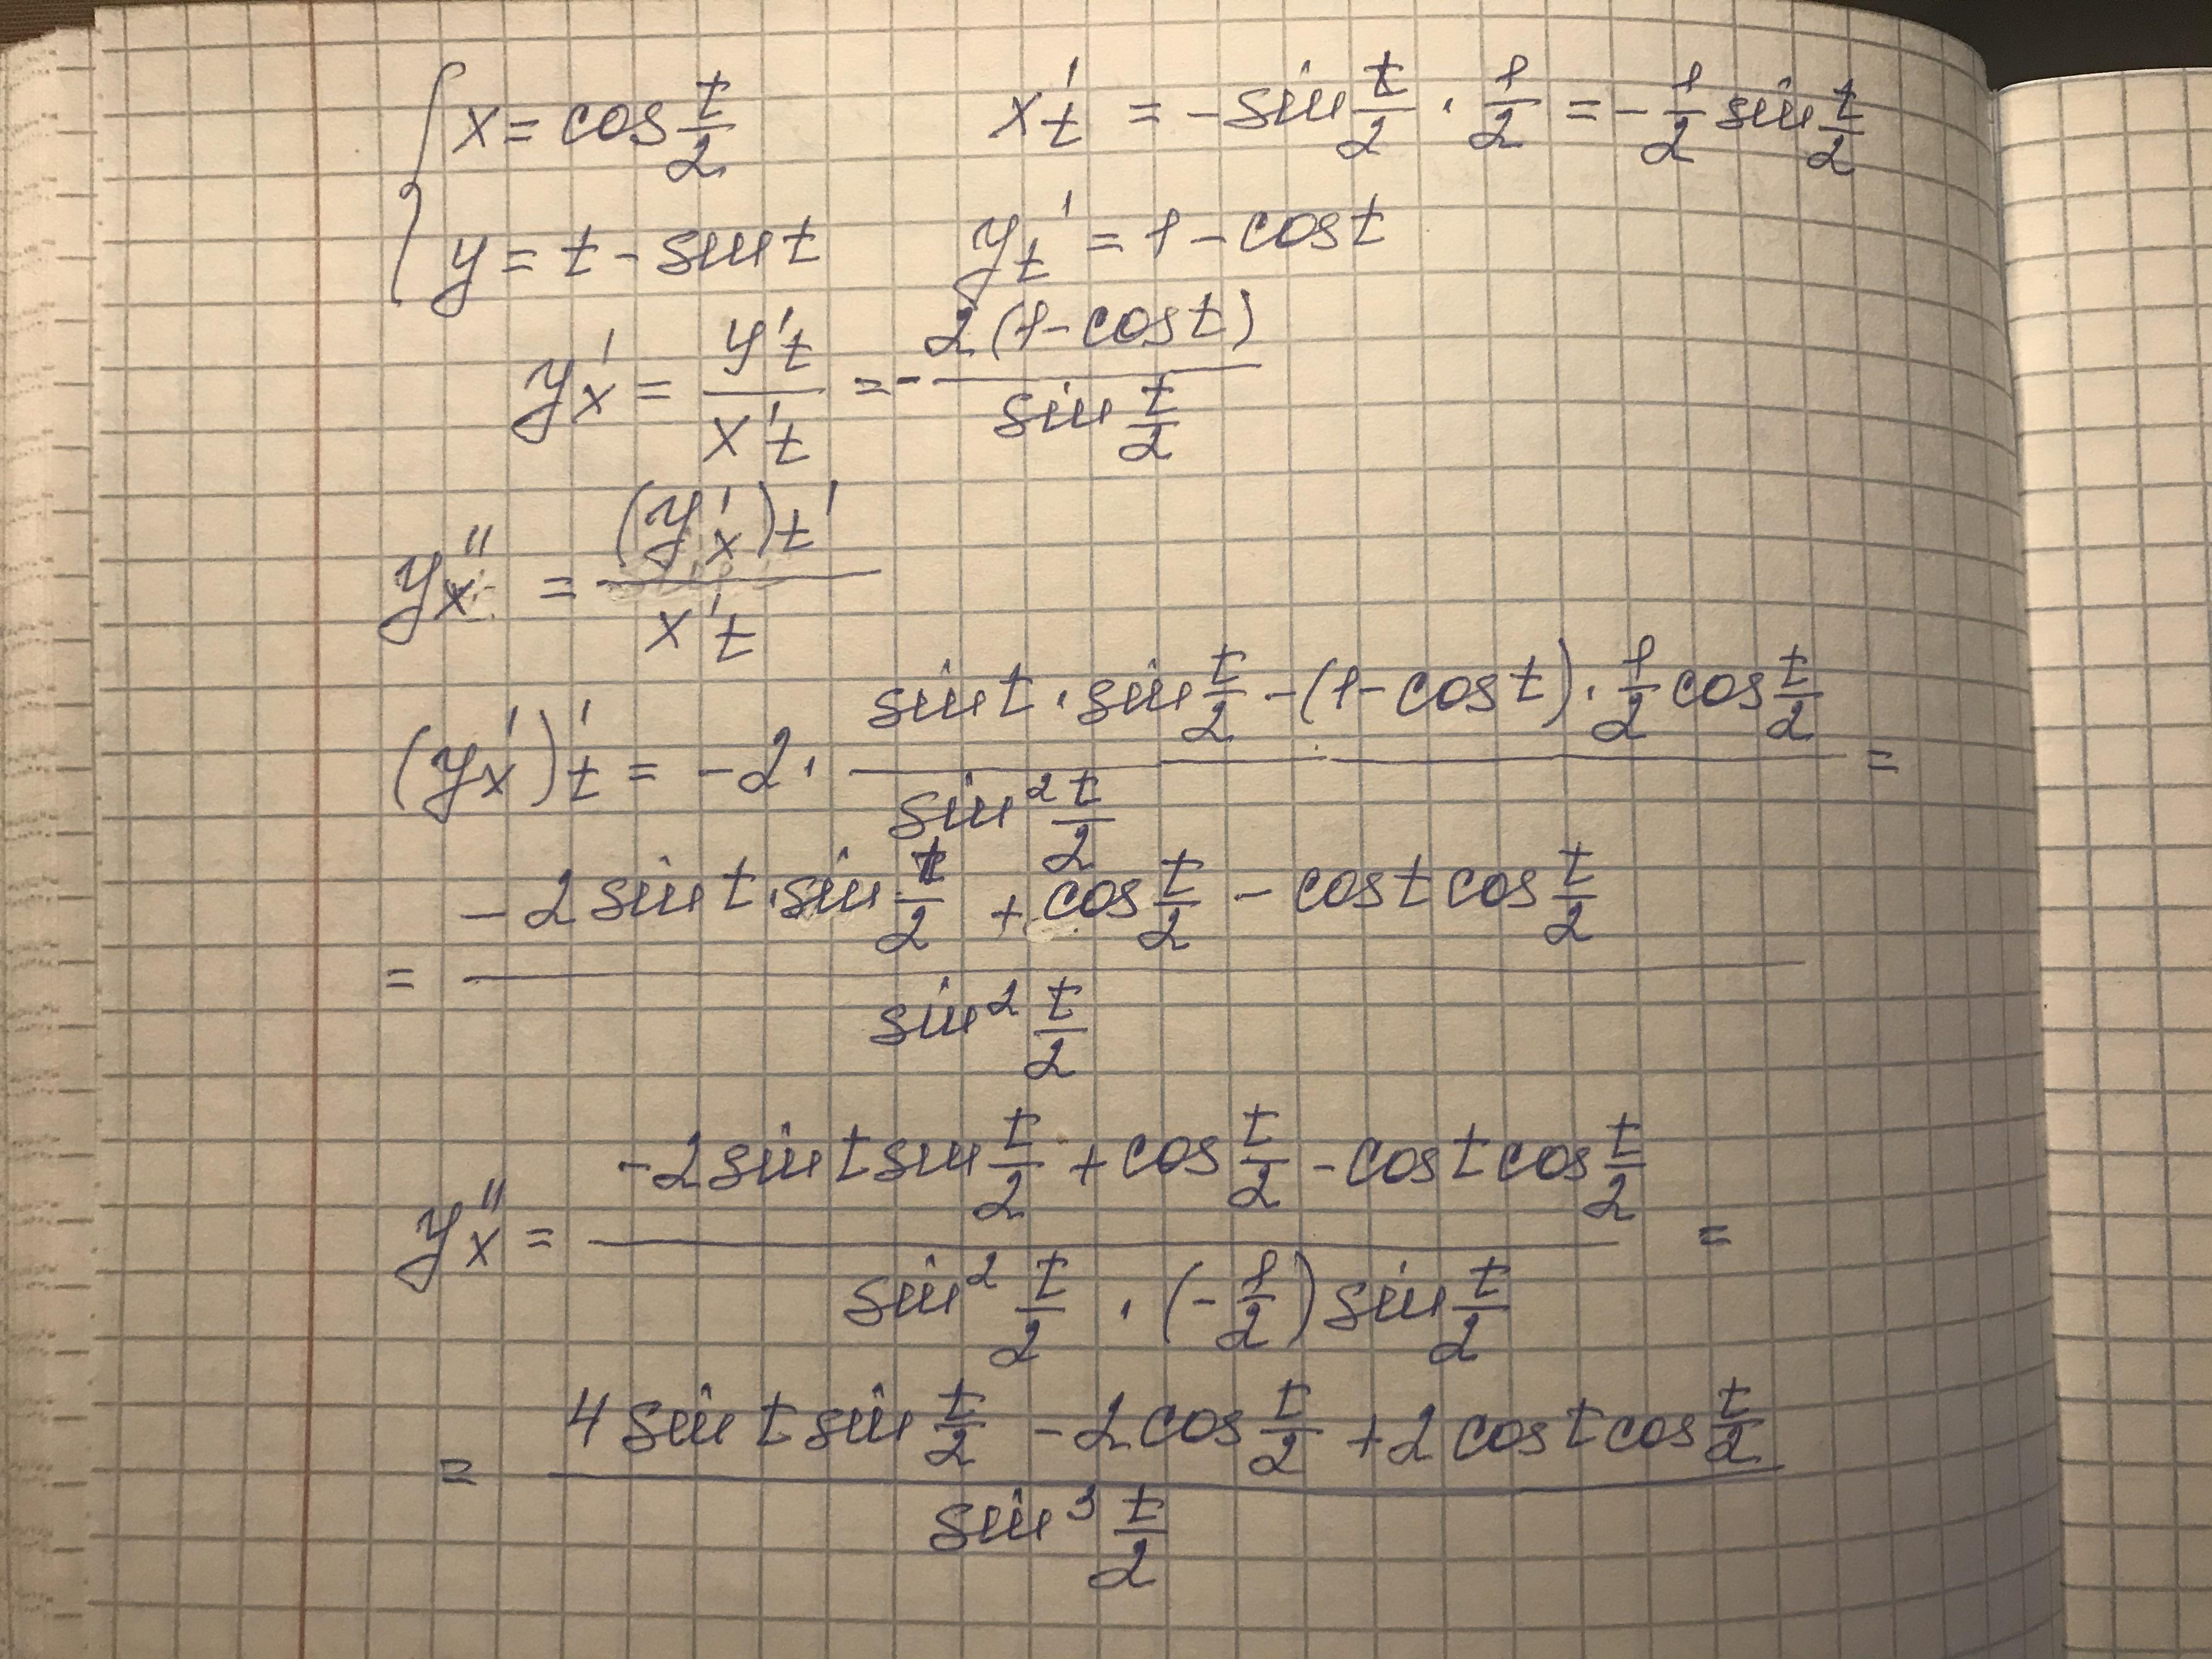 x = cos t/2    x't = -sin t/2 · 1/2 = -1/2 sin t/2
y = t - sin t    y't = 1 - cos t
y'x = y't / x't = - 2(1 - cos t) / sin t/2
y''x = (y'x)t' / x't
(y'x)'t = -2 · (sin t · sin t/2 - (1 - cos t) · 1/2 cos t/2) / sin² t/2 =
= (-2 sin t · sin t/2 + cos t/2 - cos t cos t/2) / sin² t/2
y''x = (-2 sin t sin t/2 + cos t/2 - cos t cos t/2) / (sin² t/2 · (-1/2) sin t/2) =
= (4 sin t sin t/2 - 2 cos t/2 + 2 cos t cos t/2) / sin³ t/2